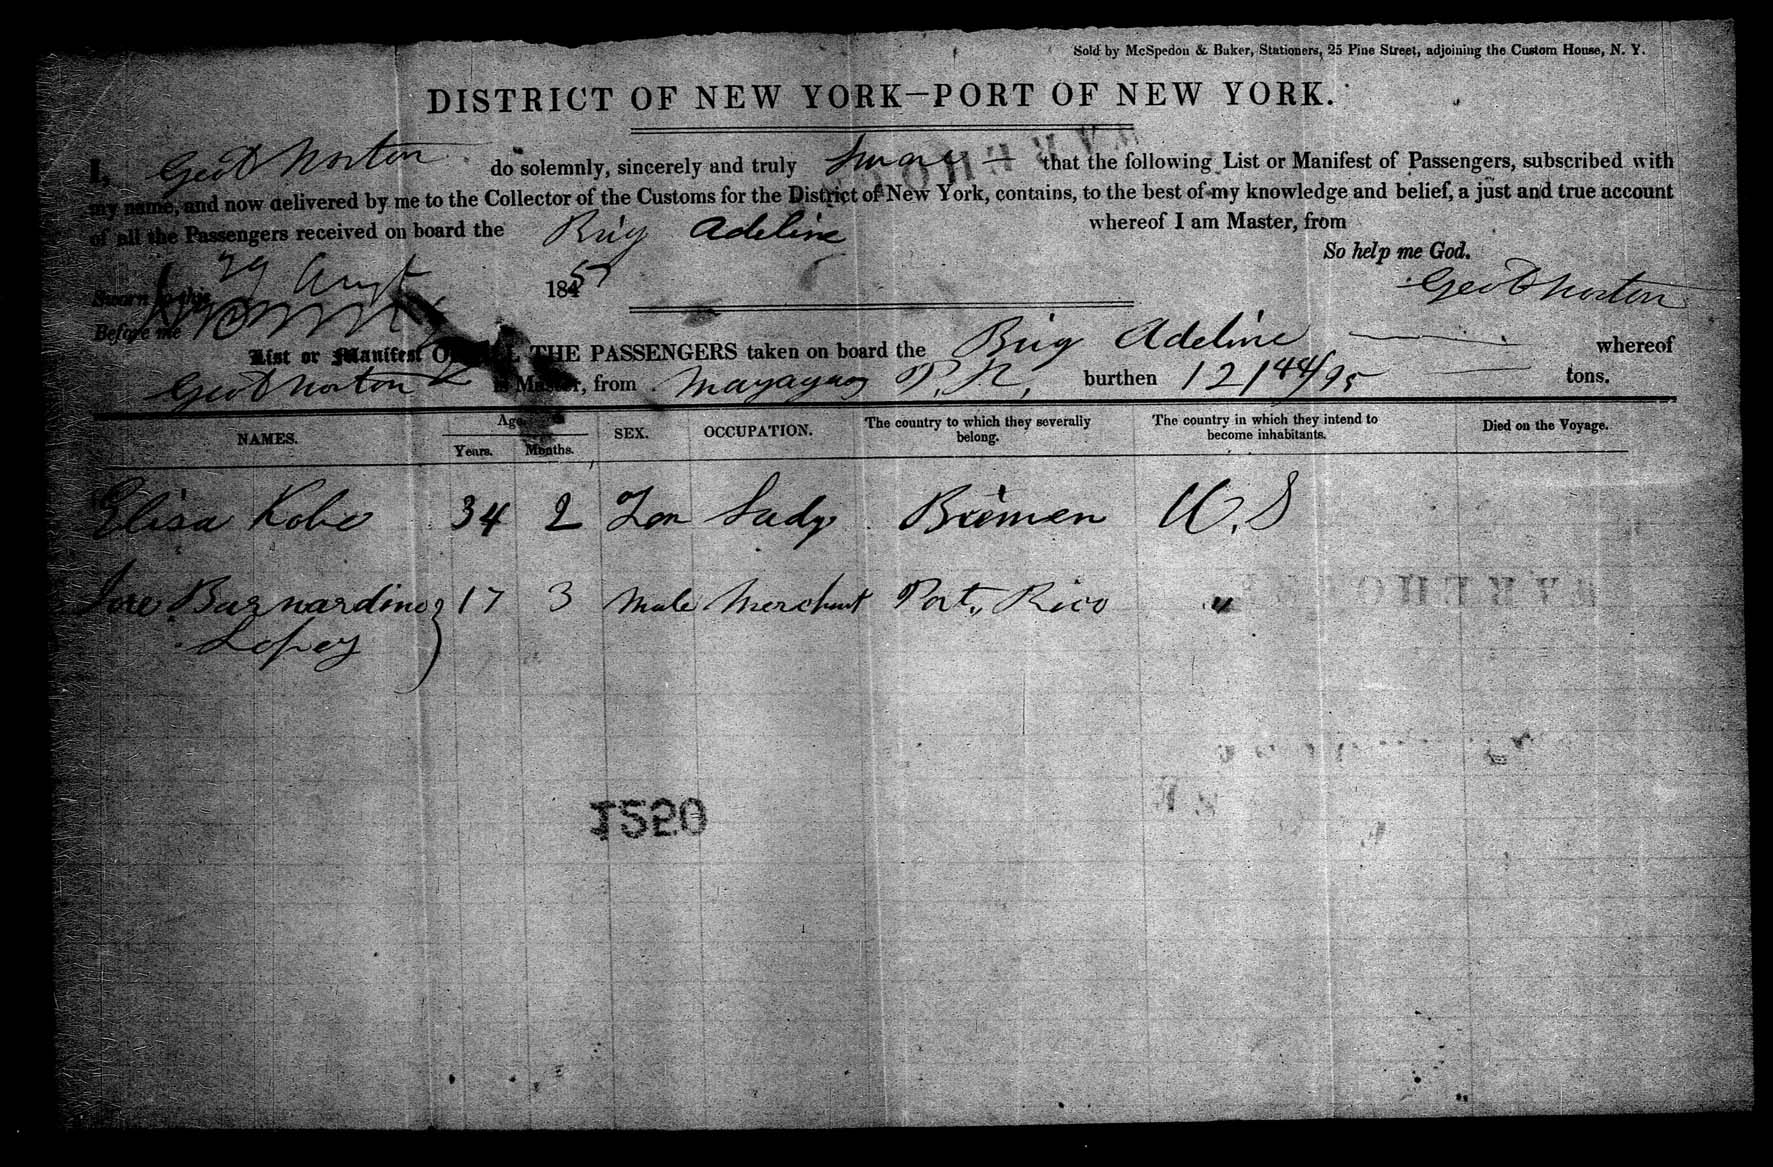 Sold by McSpedon & Baker, Stationers, 25 Pine Street, adjoining the Custom House, N. Y.
DISTRICT OF NEW YORK—PORT OF NEW YORK.
I, Geo D Norton do solemnly, sincerely and truly Swear — that the following List or Manifest of Passengers, subscribed with
my name, and now delivered by me to the Collector of the Customs for the District of New York, contains, to the best of my knowledge and belief, a just and true account
of all the Passengers received on board the Brig Adeline whereof I am Master, from
So help me God.
Sworn to this 29 Augt 185
Geo D Norton
Before me
List or Manifest OF ALL THE PASSENGERS taken on board the Brig Adeline whereof
Geo D Norton is Master, from Mayaguez P. R. burthen 121 44/95 tons.
NAMES. Age Years. Months. SEX. OCCUPATION. The country to which they severally belong. The country in which they intend to become inhabitants. Died on the Voyage.
Elisa Kobe 34 2 Lady Bremen U. S
Jose Barnardino 17 3 Male Merchant Porto Rico "
Lopez
1250